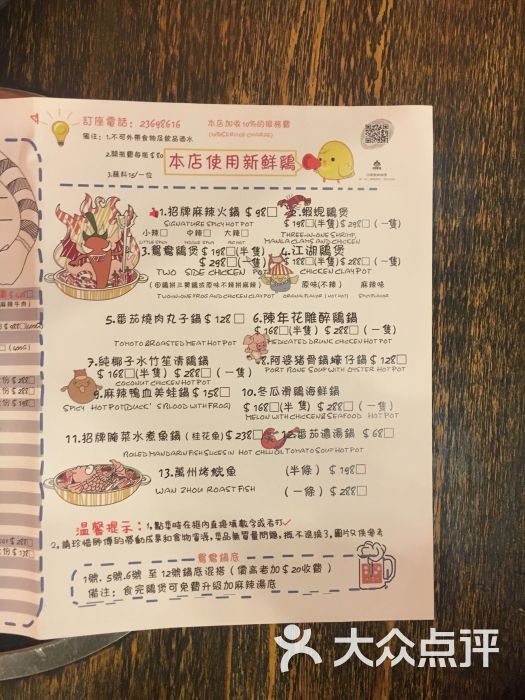 訂座電話：23698616
本店加收10%的服務費
(10%SERVICE CHARGE)
備注：1.不可外帶食物及飲品酒水
2.開瓶費每瓶$80
3.蘸料15/一位
本店使用新鮮鷄
1.招牌麻辣火鍋 $98□
SIGNATURE SPICY HOT POT
小辣□ 中辣□ 大辣□
2.蝦蜆鷄煲
$198□(半隻) $298□(一隻)
THREE-IN-ONE SHRIMP,
MANILA CLAMS AND CHICKEN
3.鴛鴦鷄煲 $198□(半隻)
$298□(一隻)
TWO SIDE CHICKEN POT
(田鷄拼三黄鷄或原味不辣拼麻辣)
TWO IN ONE FROG AND CHICKEN CLAY POT
4.江湖鷄煲
$188□(半隻) $288□(一隻)
CHICKEN CLAY POT
原味(不辣) 麻辣味
ORIGINAL FLAVOR (NOT HOT) SPICY FLAVOR
5.番茄燒肉丸子鍋 $128□
TOMOTO & ROASTED MEAT HOT POT
6.陳年花雕醉鷄鍋
$168□(半隻) $288□(一隻)
MEDICATED DRUNK CHICKEN HOT POT
7.純椰子水竹笙清鷄鍋
$168□(半隻) $288□(一隻)
COCONUT CHICKEN HOT POT
8.阿婆豬骨鍋蠔仔鍋 $128□
PORT BONE SOUP WITH OYSTER HOT POT
9.麻辣鴨血美蛙鍋 $158□
SPICY HOT POT(DUCK'S BLOOD WITH FROG)
10.冬瓜滑鷄海鮮鍋
$168□(半隻) $288□(一隻)
MELON WITH CHICKEN & SEAFOOD HOT POT
11.招牌酸菜水煮魚鍋(桂花魚) $238□
BOILED MANDARIN FISH SLICES IN HOT CHILI OIL
12.番茄濃湯鍋 $68□
TOMATO SOUP HOT POT
13.萬州烤鯇魚 (半條) $198□
WAN ZHOU ROAST FISH (一條) $288□
溫馨提示：1.點菜時在框内直接填數字或者打✓
2.請珍惜師傅的勞動成果和食物資源，菜品無質量問題，概不退換 3.圖片僅供參考
鴛鴦鍋底
1號.5號.6號 至 12號鍋底混搭（需高老加$20收費）
備注：食完鷄煲可免費升級加麻辣湯底
大众点评